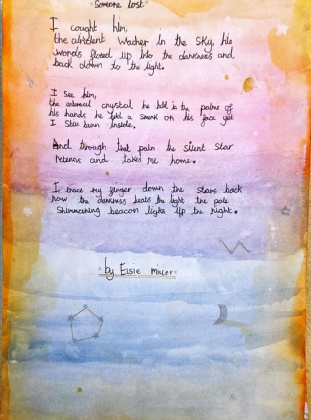 "Someone lost"
I cought him,
the ancient Wacher in the Sky, his
words flosed up into the darkness and
back down to the light.
I See him,
the eternal crystal he held in the palms of
his hands he held a smirk on his face yet
I Still burn inside.
And through that pain he silent Star
retens and takes me home.
I trace my finger down the stars back
now the darkness beats the light the pale
Shimmering beacon lights up the night.
by Elsie Miller